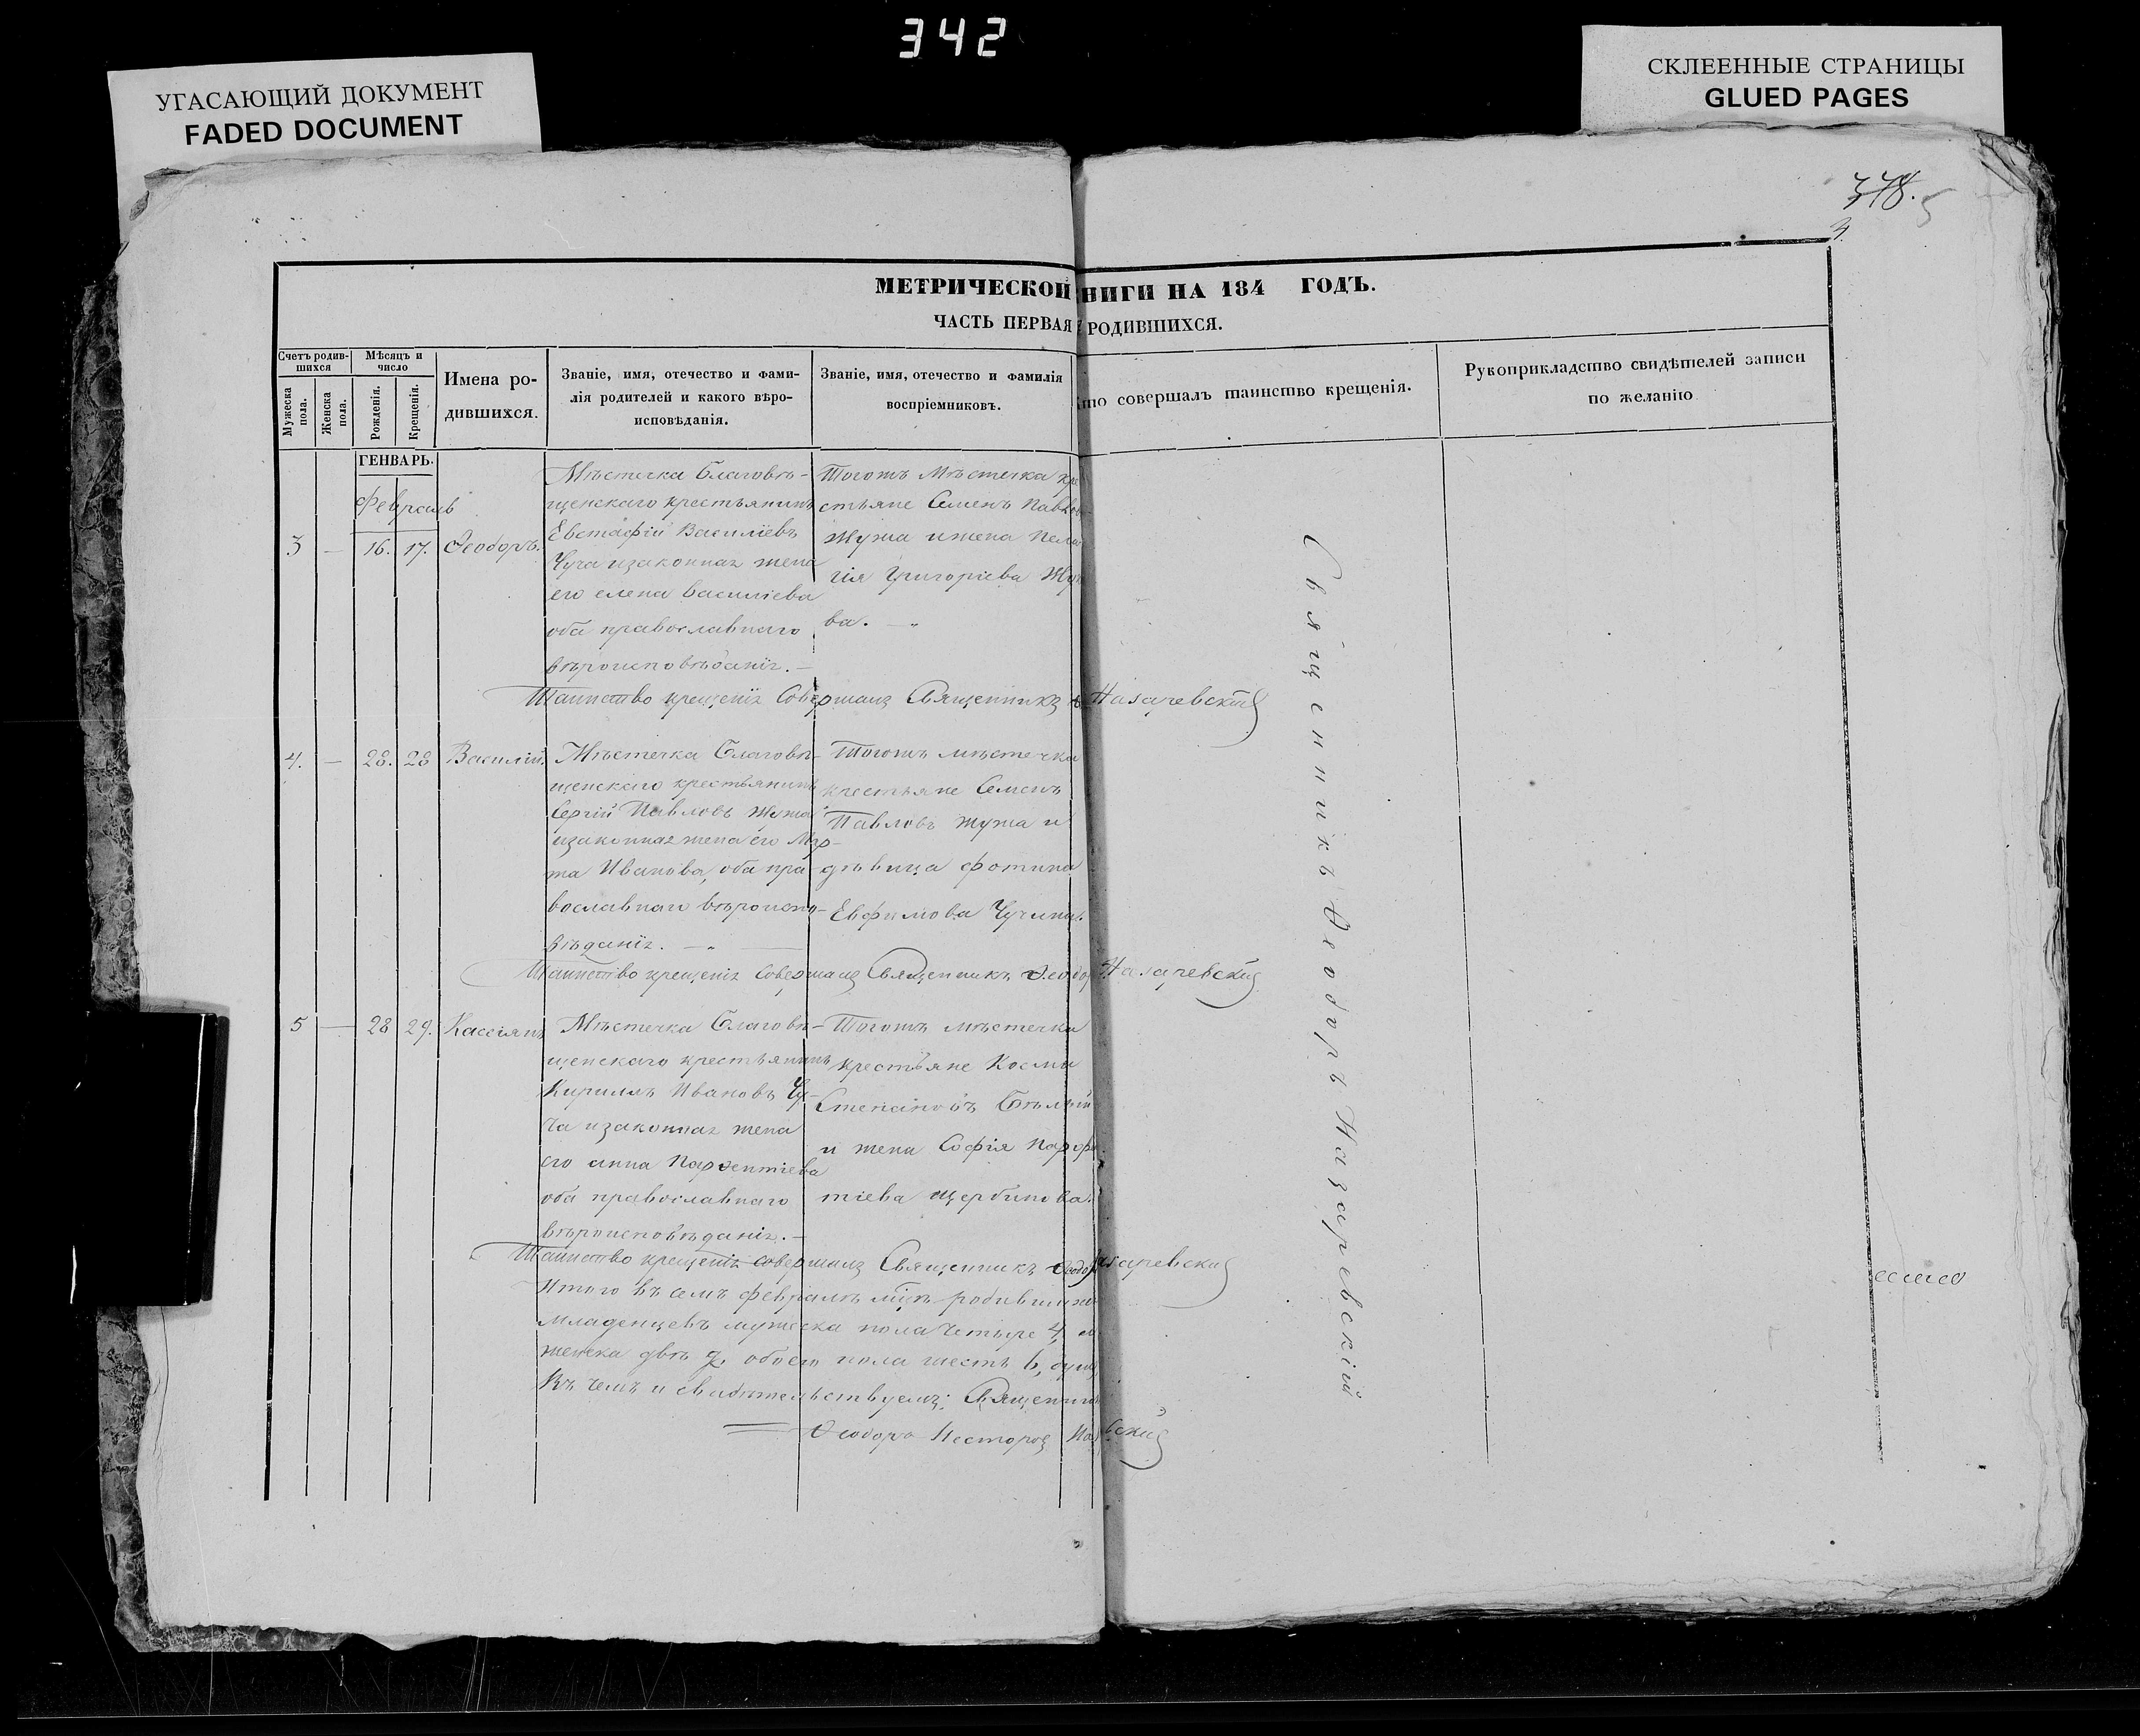 342
УГАСАЮЩИЙ ДОКУМЕНТ
FADED DOCUMENT
СКЛЕЕННЫЕ СТРАНИЦЫ
GLUED PAGES
МЕТРИЧЕСКОЙ НИГИ НА 184 ГОДЪ.
ЧАСТЬ ПЕРВАЯ РОДИВШИХСЯ.
Счетъ родив-
шихся
Мужеска
пола.
Женска
пола.
Мѣсяцъ и
число
Рожденія.
Крещенія.
Имена ро-
дившихся.
Званіе, имя, отечество и фами-
лія родителей и какого вѣро-
исповѣданія.
Званіе, имя, отечество и фамилія
воспріемниковъ.
то совершалъ таинство крещенія.
Рукоприкладство свидѣтелей записи
по желанію
ГЕНВАРЬ.
Февраль
3 — 16. 17. Ѳеодоръ.
Мѣстечка Благовѣ-
щенскаго крестьянинъ
Евстафій Василіевъ
Чуча изаконная жена
его елена Василіева
оба православнаго
вѣроисповѣданія. —
Тогожъ Мѣстечка кре
стьяне Семенъ Павлов
Жужа ижена Пела
гія Григоріева Жуж
ва. —
Таинство крещенія Совершалъ Священникъ Назаревскій
4. — 28. 28 Василій.
Мѣстечка Благовѣ-
щенскаго крестьянинъ
Сергій Павловъ Жужа
изаконная жена его Мар-
та Иванова, оба пра-
вославнаго вѣроиспо-
вѣданія. —
Тогожъ мѣстечка
крестьяне Семенъ
Павловъ Жужа и
дѣвица Фотина
Евфимова
Таинство крещенія Совершалъ Священникъ Ѳеодор Назаревскій
5 — 28 29. Кассіянъ
Мѣстечка Благовѣ-
щенскаго крестьянинъ
Кириллъ Ивановъ Чу-
ча изаконная жена
его анна Парѳентіева
оба православнаго
вѣроисповѣданія. —
Тогожъ мѣстечка
крестьяне Косма
Степановъ Бѣлый
и жена Софія Парфе
тіева щербинова.
Таинство крещенія совершалъ Священникъ Ѳеодор азаревский
Итого въ семъ февралѣ мцѣ родивших
младенцевъ мужеска пола четыре 4, а
женска двѣ 2, обоего пола шесть 6, душ
Въ чемъ и свидѣтельствуемъ: Священник
Ѳеодоръ Несторов На вский
Священникъ Ѳеодоръ Назаревскій